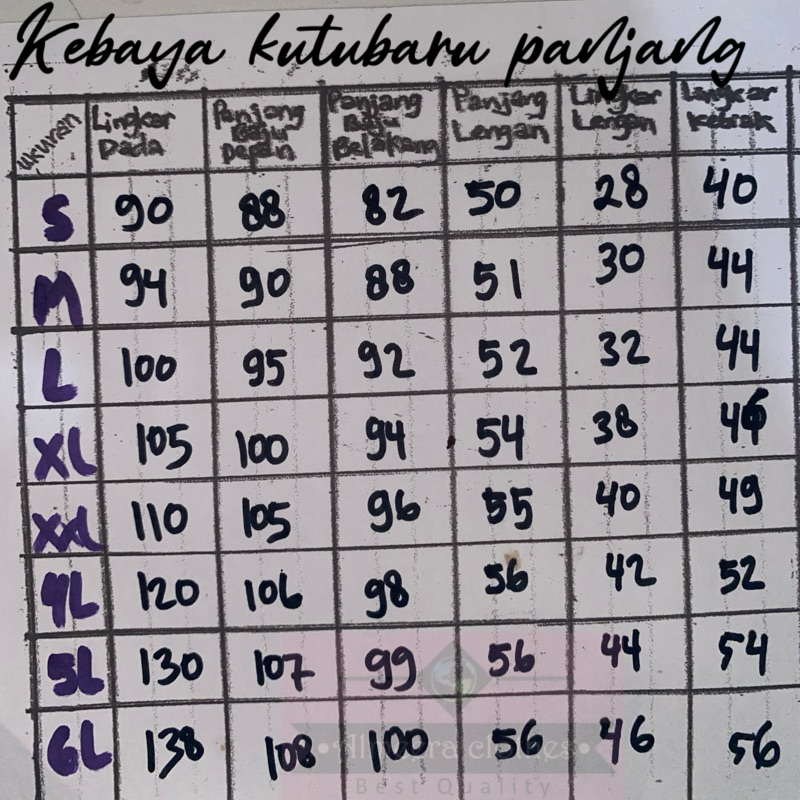 Kebaya kutubaru panjang
ukuran Lingkar Dada Panjang Baju Depan Panjang Baju Belakang Panjang Lengan Lingkar Lengan Lingkar Ketiak
S 90 88 82 50 28 40
M 94 90 88 51 30 44
L 100 95 92 52 32 44
XL 105 100 94 54 38 46
XXL 110 105 96 55 40 49
4L 120 106 98 56 42 52
5L 130 107 99 56 44 54
6L 138 108 100 56 46 56
Best Quality